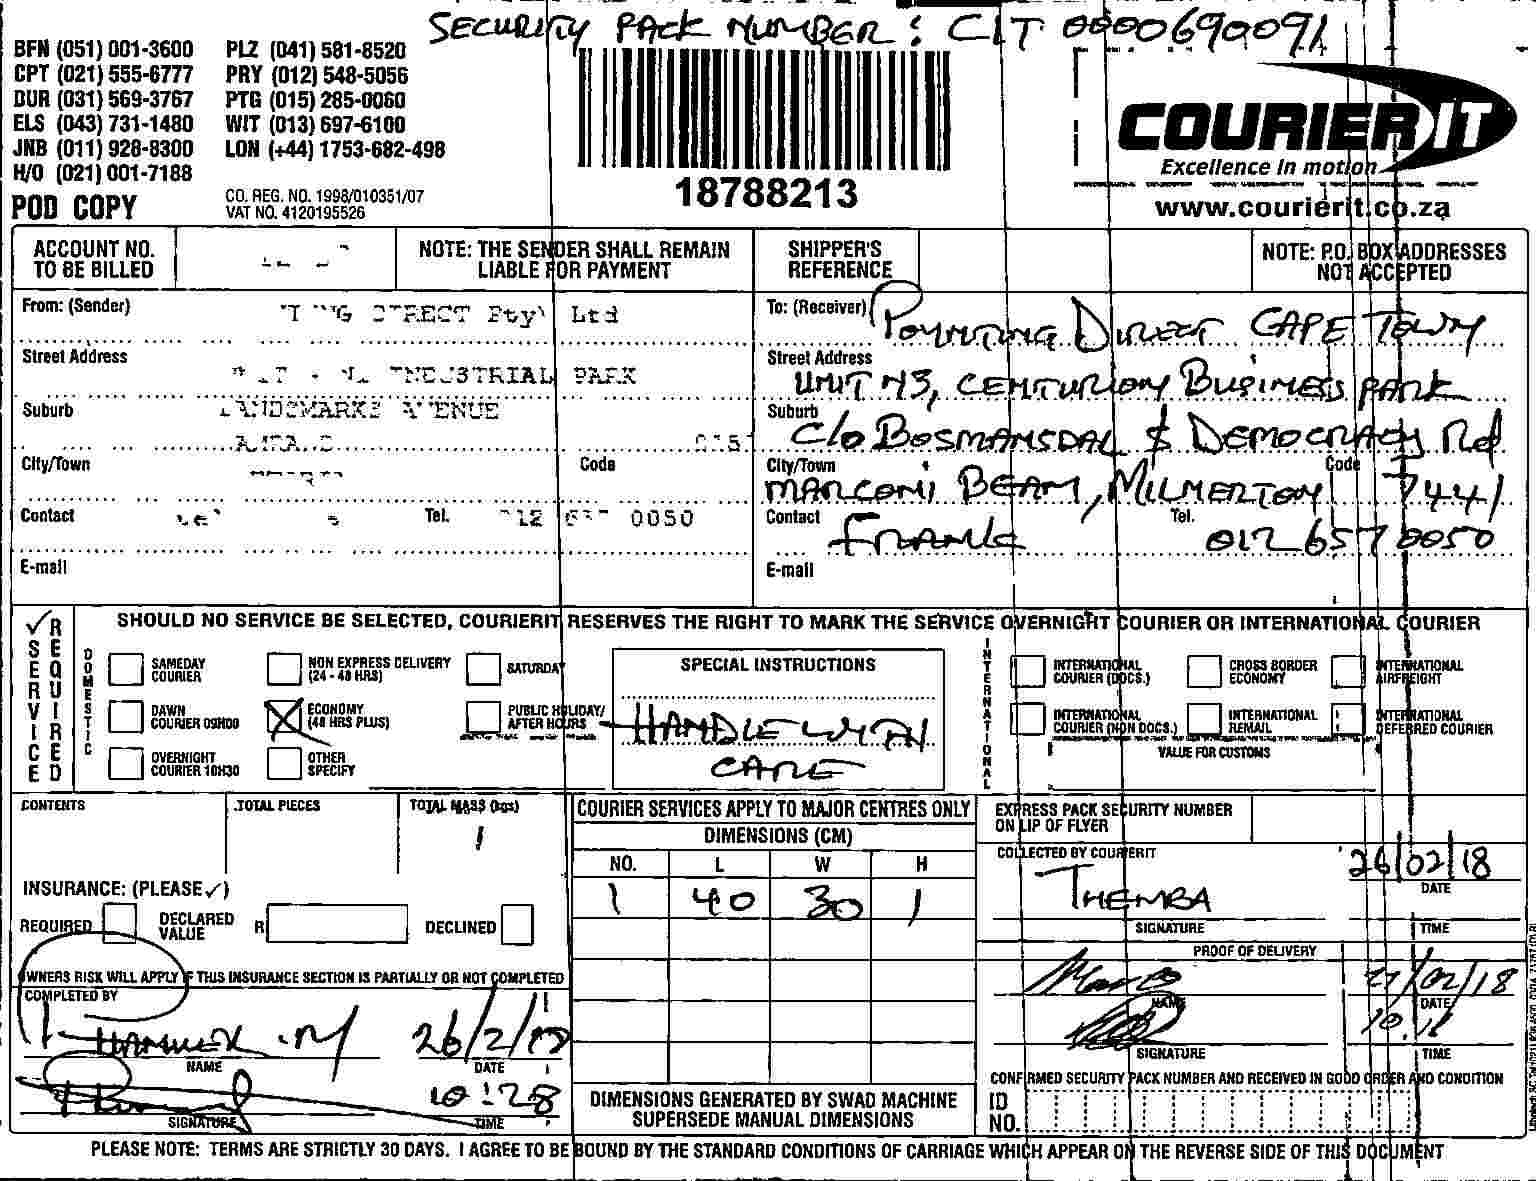 SECURITY PACK NUMBER: CIT 0000690091
BFN (051) 001-3600 PLZ (041) 581-8520
CPT (021) 555-6777 PRY (012) 548-5056
DUR (031) 569-3767 PTG (015) 285-0060
ELS (043) 731-1480 WIT (013) 697-6100
JNB (011) 928-8300 LON (+44) 1753-682-498
H/O (021) 001-7188
POD COPY
CO. REG. NO. 1998/010351/07
VAT NO. 4120195526
18788213
COURIER IT
Excellence in motion
www.courierit.co.za
ACCOUNT NO. TO BE BILLED
NOTE: THE SENDER SHALL REMAIN LIABLE FOR PAYMENT
SHIPPER'S REFERENCE
NOTE: P.O. BOX ADDRESSES NOT ACCEPTED
From: (Sender) DIRECT Pty) Ltd
Street Address INDUSTRIAL PARK
Suburb LANDSMARKS AVENUE
City/Town Code
Contact Tel. 012 657 0050
E-mail
To: (Receiver) POINTING DIRECT CAPE TOWN
Street Address UNIT 43, CENTURION BUSINESS PARK
Suburb C/O BOSMANSDAL & DEMOCRACY Rd
City/Town MARCONI BEAM, MILNERTON Code 7441
Contact FRANK Tel. 012 657 0050
E-mail
SERVICE REQUIRED
SHOULD NO SERVICE BE SELECTED, COURIERIT RESERVES THE RIGHT TO MARK THE SERVICE OVERNIGHT COURIER OR INTERNATIONAL COURIER
DOMESTIC
SAMEDAY COURIER
NON EXPRESS DELIVERY (24 - 48 HRS)
SATURDAY
DAWN COURIER 09H00
ECONOMY (48 HRS PLUS)
PUBLIC HOLIDAY/ AFTER HOURS
OVERNIGHT COURIER 10H30
OTHER SPECIFY
SPECIAL INSTRUCTIONS
HANDLE WITH
CARE
INTERNATIONAL
INTERNATIONAL COURIER (DOCS.)
CROSS BORDER ECONOMY
INTERNATIONAL AIRFREIGHT
INTERNATIONAL COURIER (NON DOCS.)
INTERNATIONAL REMAIL
INTERNATIONAL DEFERRED COURIER
VALUE FOR CUSTOMS
CONTENTS
TOTAL PIECES
TOTAL MASS (kgs)
1
INSURANCE: (PLEASE ✓)
REQUIRED
DECLARED VALUE R
DECLINED
OWNERS RISK WILL APPLY IF THIS INSURANCE SECTION IS PARTIALLY OR NOT COMPLETED
COMPLETED BY
26/2/18
NAME DATE
10:28
SIGNATURE TIME
COURIER SERVICES APPLY TO MAJOR CENTRES ONLY
DIMENSIONS (CM)
NO. L W H
1 40 30 1
DIMENSIONS GENERATED BY SWAD MACHINE SUPERSEDE MANUAL DIMENSIONS
EXPRESS PACK SECURITY NUMBER ON LIP OF FLYER
COLLECTED BY COURIERIT
THEMBA 26/02/18
DATE
SIGNATURE TIME
PROOF OF DELIVERY
27/02/18
NAME DATE
SIGNATURE TIME
CONFIRMED SECURITY PACK NUMBER AND RECEIVED IN GOOD ORDER AND CONDITION
ID NO.
PLEASE NOTE: TERMS ARE STRICTLY 30 DAYS. I AGREE TO BE BOUND BY THE STANDARD CONDITIONS OF CARRIAGE WHICH APPEAR ON THE REVERSE SIDE OF THIS DOCUMENT